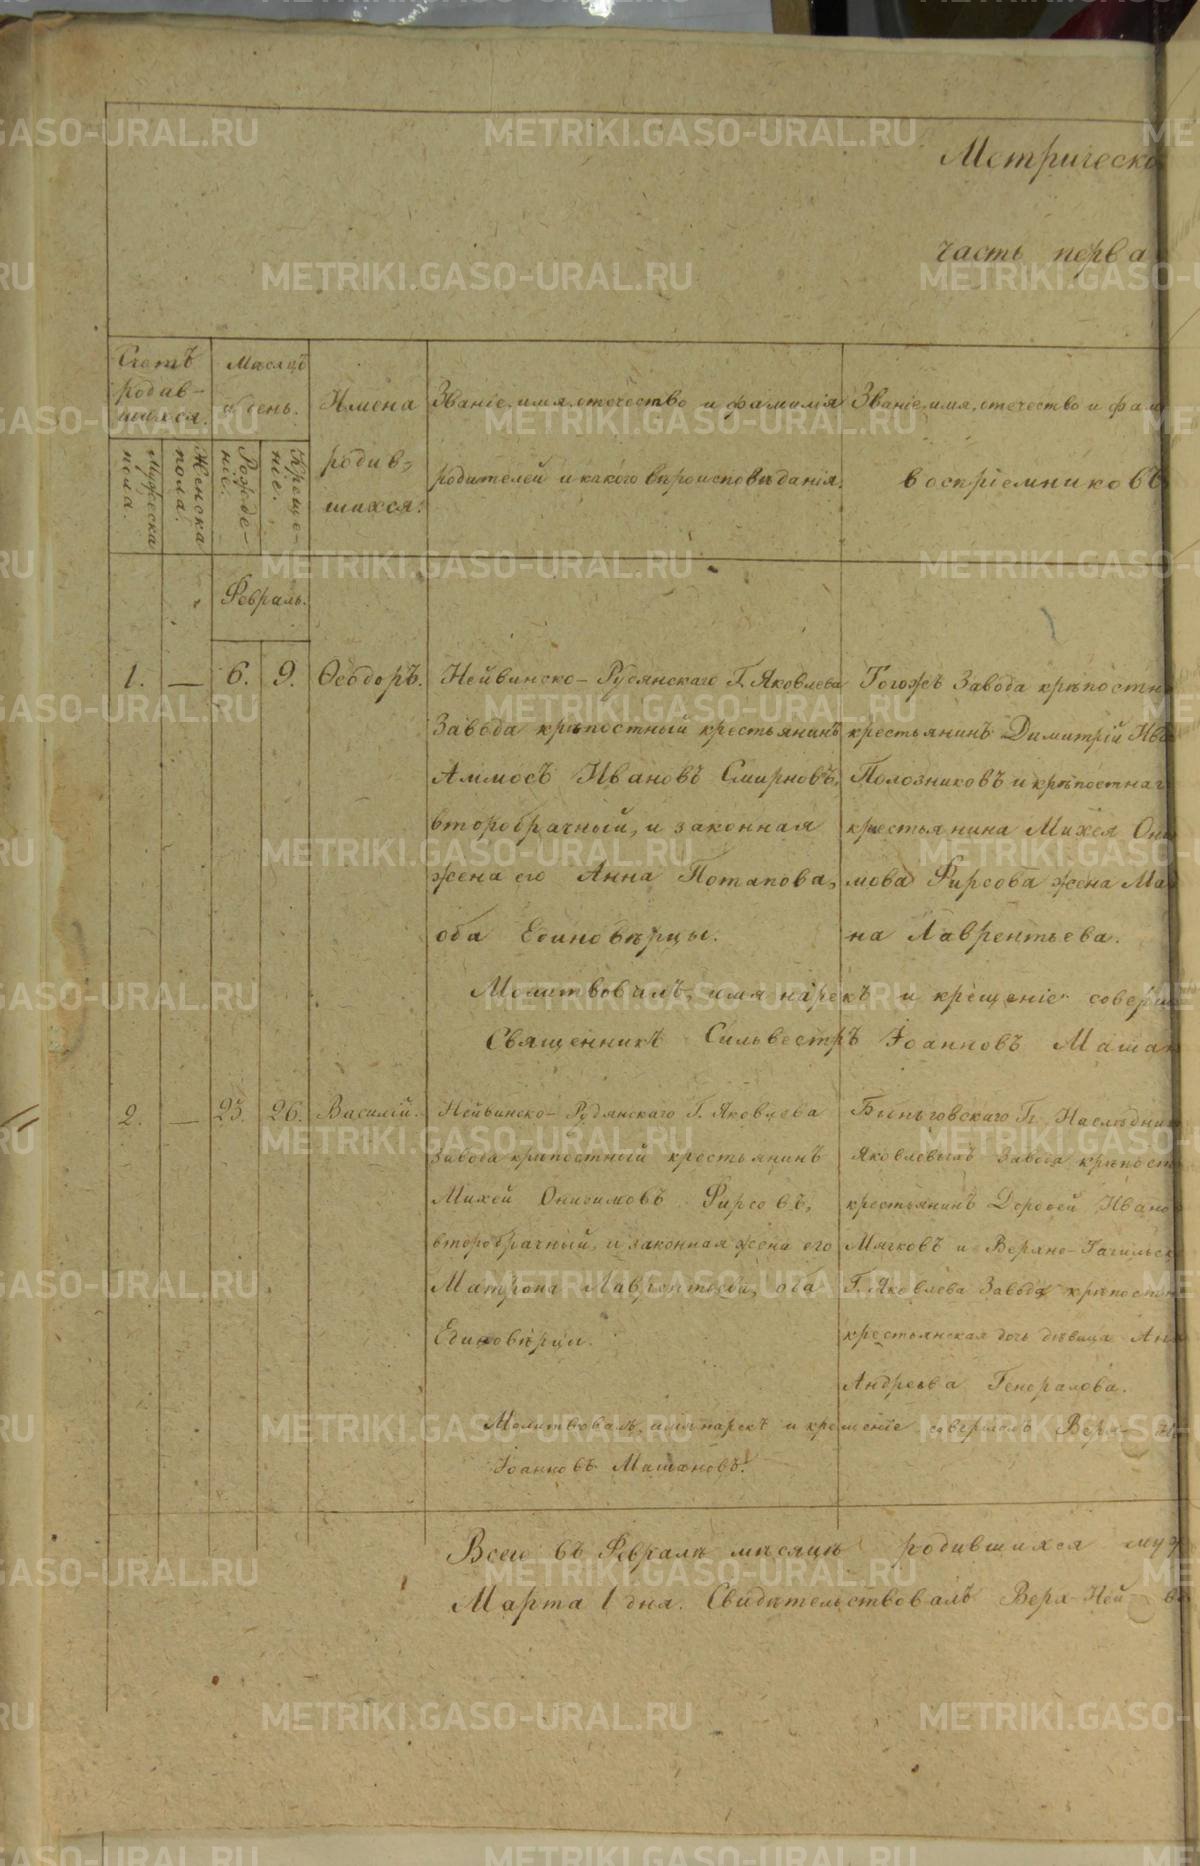 Метрическо
часть перва
Счетъ родив-шихся.
Мѣсяцъ и день.
Имена родив-шихся.
Званіе, имя, отечество и фамилія родителей и какого вѣроисповѣданія.
Званіе, имя, отечество и фам
воспріемниковъ
Мужеска пола.
Женска пола.
Рожде-ніе.
Креще-ніе.
Февраль.
1. — 6. 9. Ѳеодоръ.
Нейвинско-Рудянскаго Г. Яковлева
Завода крѣпостный крестьянинъ
Аммосъ Ивановъ Смирновъ,
второбрачный, и законная
жена его Анна Потапова,
оба Единовѣрцы.
Тогожъ Завода крѣпостн
крестьянинъ Димитрій Ив
Полозниковъ и крѣпостнаг
крестьянина Михея Они
мова Фирсова жена Ма
на Лаврентьева.
Молитвовалъ, имя нарекъ и крещеніе соверш
Священникъ Сильвестръ Іоанновъ Машан
2. — 25 26. Василій.
Нейвинско-Рудянскаго Г. Яковлева
Завода крѣпостный крестьянинъ
Михей Онисимовъ Фирсовъ,
второбрачный, и законная жена его
Матрона Лаврентьева, оба
Единовѣрцы.
Быньговскаго Гг. Наслѣдник
Яковлевыхъ Завода крѣпост
крестьянинъ Дороѳей Ивано
Мягковъ и Верхне-Тагильск
Г. Яковлева Завода крѣпостн
крестьянская дочь дѣвица Ан
Андреева Генералова.
Молитвовалъ, имя нарекъ и крещеніе совершилъ Верх-
Іоанновъ Машановъ.
Всего въ Февралѣ мѣсяцѣ родившихся муж
Марта 1 дня. Свидѣтельствовалъ Верх-Ней-в
METRIKI.GASO-URAL.RU